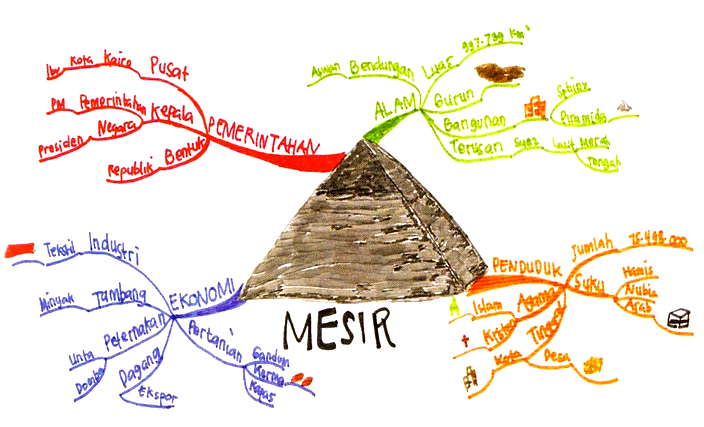 MESIR
PEMERINTAHAN
Pusat
Kota Kairo
Kepala
Pemerintahan
PM
Negara
Presiden
Bentuk
Republik
ALAM
Bendungan
Aswan
Luas
997.739 km²
Gurun
Bangunan
Sphinx
Piramida
Terusan
Suez
Laut Merah
Tengah
EKONOMI
Industri
Tekstil
Tambang
Minyak
Peternakan
Unta
Domba
Dagang
Ekspor
Pertanian
Gandum
Kurma
Kapas
PENDUDUK
Jumlah
Suku
Hamis
Nubia
Arab
Agama
Islam
Kristen
Tinggal
Kota
Desa